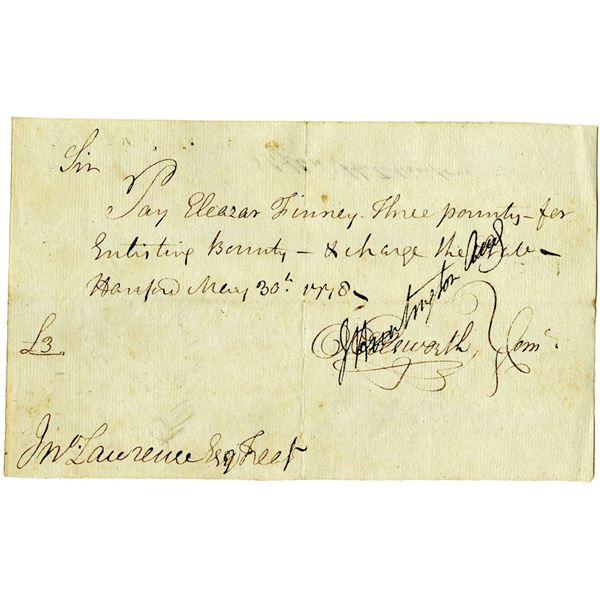 Sir
Pay Eleazar Finney Three pounds – for
Enlisting Bounty – & charge the State –
Harford May 30th 1778 –
£3.
J Huntington
Ellsworth, Com
Jno Lawrence Esq Treasr